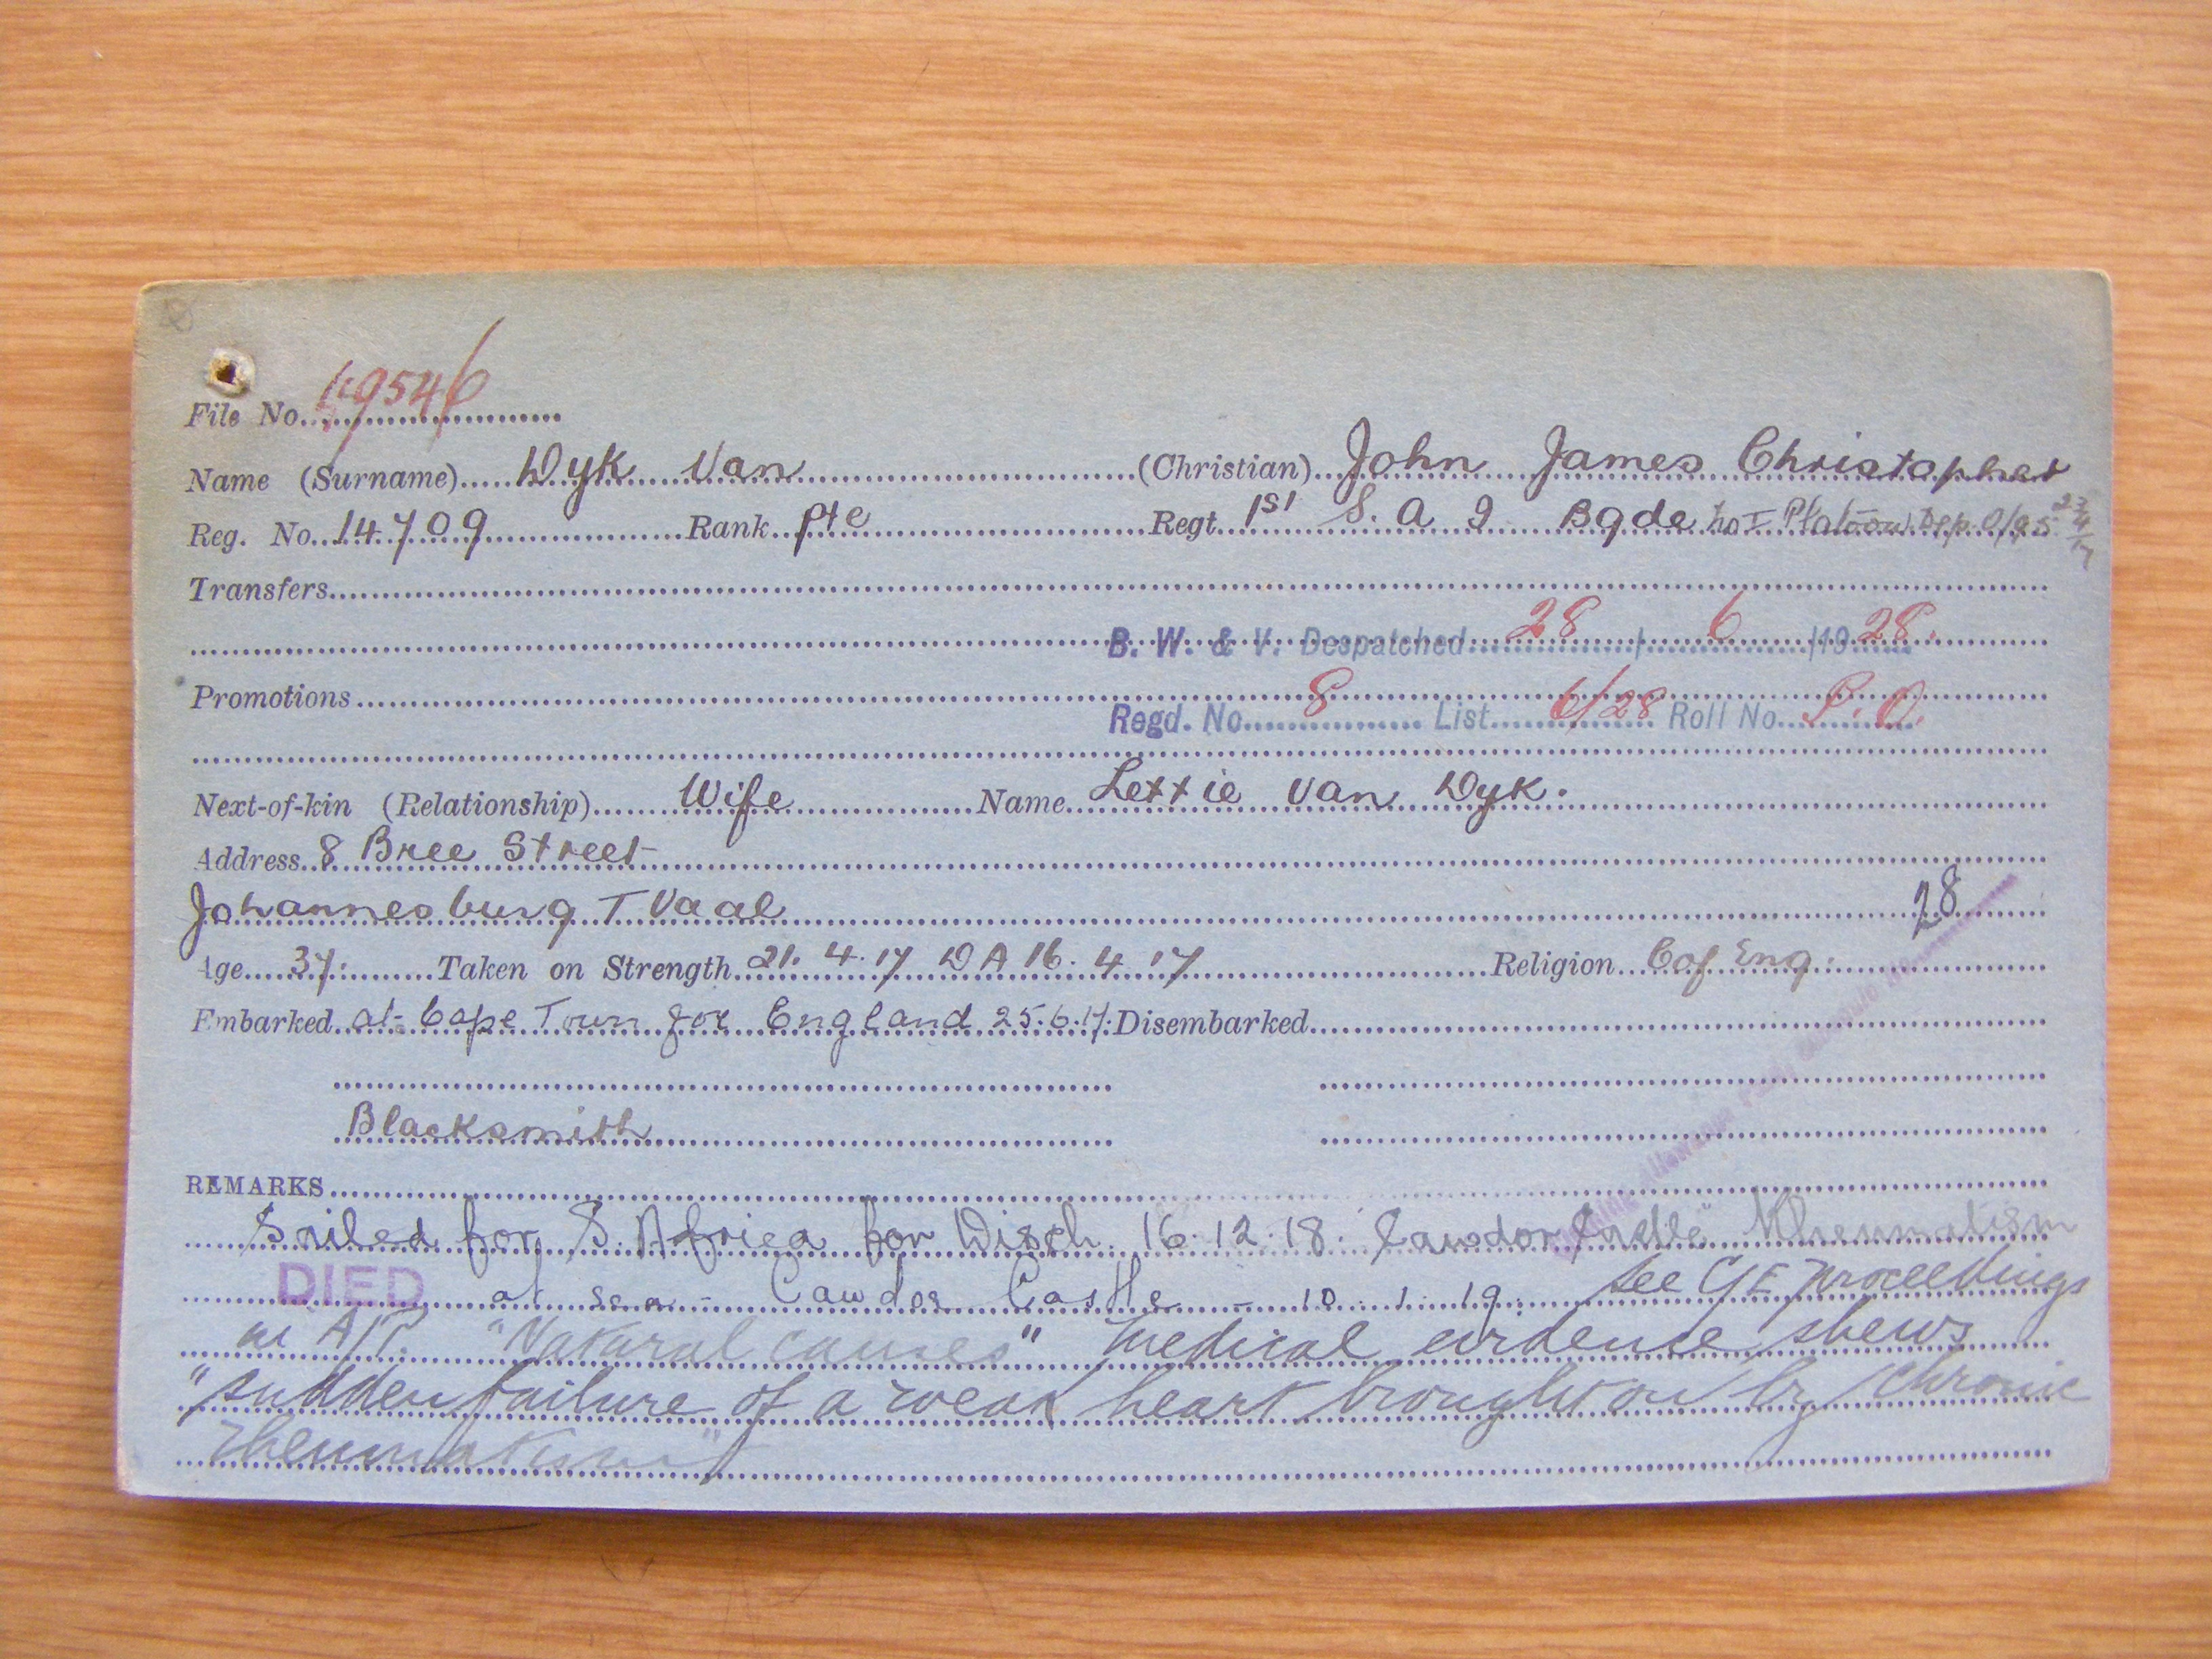 File No. 19546
Name (Surname) Dyk Van (Christian) John James Christopher
Reg. No. 14709 Rank Pte Regt. 1st S. A I Bgde No I Platoon Dep. 23/4/17
Transfers
B. W. & V. Despatched 28 / 6 /1928.
Promotions
Regd. No. 8 List 6/28 Roll No. P. O.
Next-of-kin (Relationship) Wife Name Lettie Van Dyk.
Address 8 Bree Street
Johannesburg T Vaal
28
Age 37. Taken on Strength 21. 4. 17 D A 16. 4. 17 Religion C of Eng.
Embarked at Cape Town for England 25.6.17. Disembarked
Blacksmith
REMARKS
Sailed for S. Africa for Disch. 16.12.18. Cawdor Castle" Rheumatism
DIED at sea - Cawdor Castle - 10.1.19. See C of E proceedings
"Natural causes" Medical evidence shews
"sudden failure of a weak heart brought on by chronic
rheumatism"